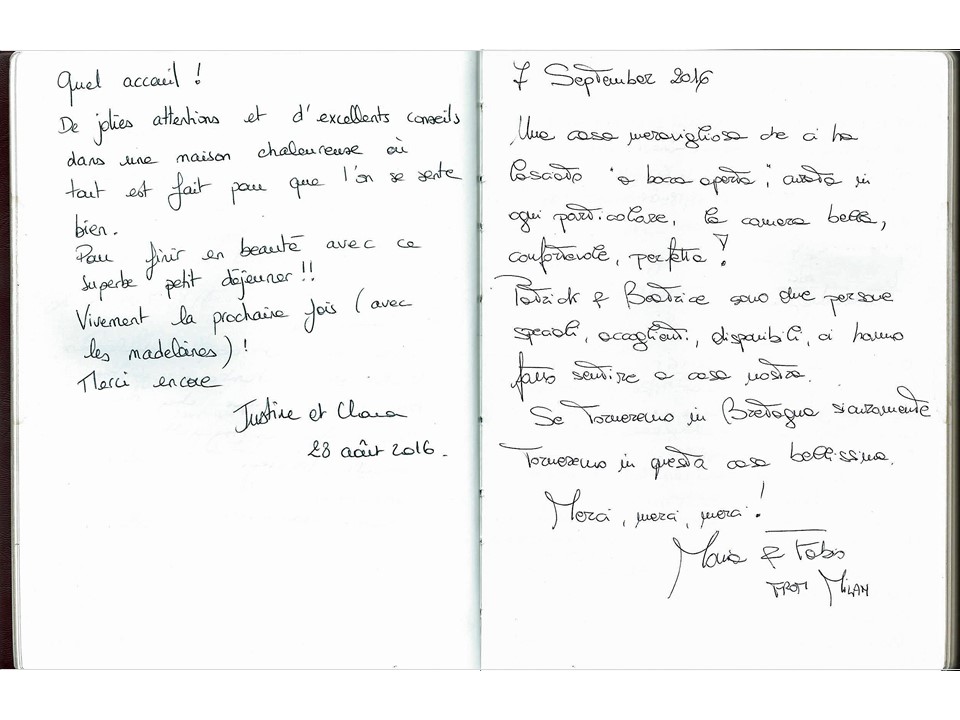 Quel accueil !
De jolies attentions et d'excellents conseils
dans une maison chaleureuse où
tout est fait pour que l'on se sente
bien.
Pour finir en beauté avec ce
superbe petit déjeuner !!
Vivement la prochaine fois (avec
les madelaines) !
Merci encore
Justine et Clara
28 août 2016.
7 September 2016
Una casa meravigliosa che ci ha
lasciato "a bocca aperta", curata in
ogni particolare, la camera bella,
confortevole, perfetta !
Patrick & Beatrice sono due persone
speciali, accoglienti, disponibili, ci hanno
fatto sentire a casa nostra.
Se torneremo in Bretagna sicuramente
torneremo in questa casa bellissima.
Merci, merci, merci !
& Fabio
FROM MILAN